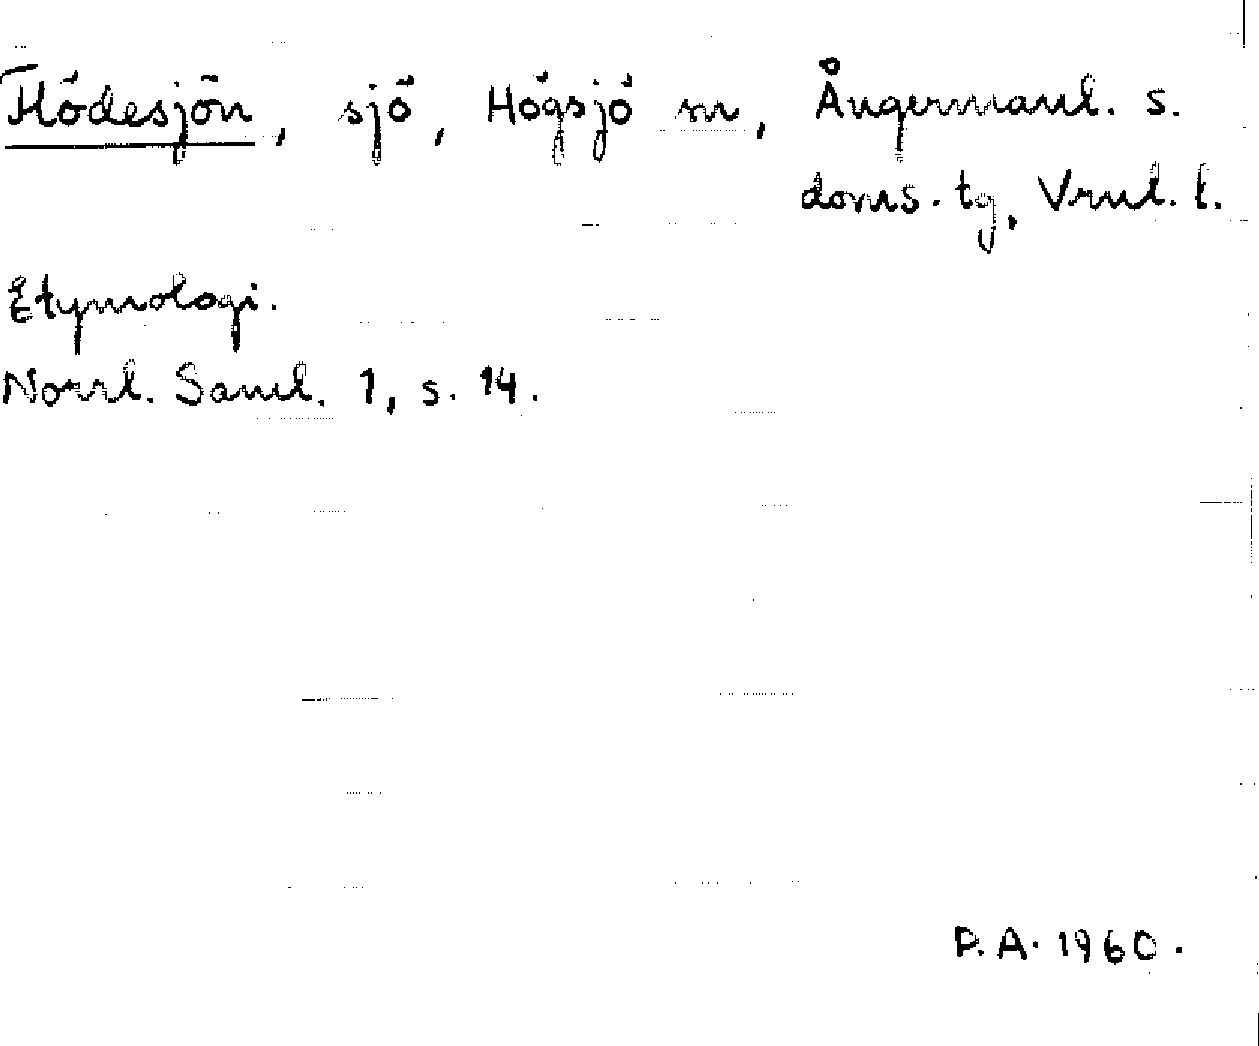 Flödesjön, sjö, Högsjö sn, Ångermanl. s.
doms. tg, Vrnl. l.
Etymologi.
Norrl. Saml. 1, s. 14.
P.A. 1960.